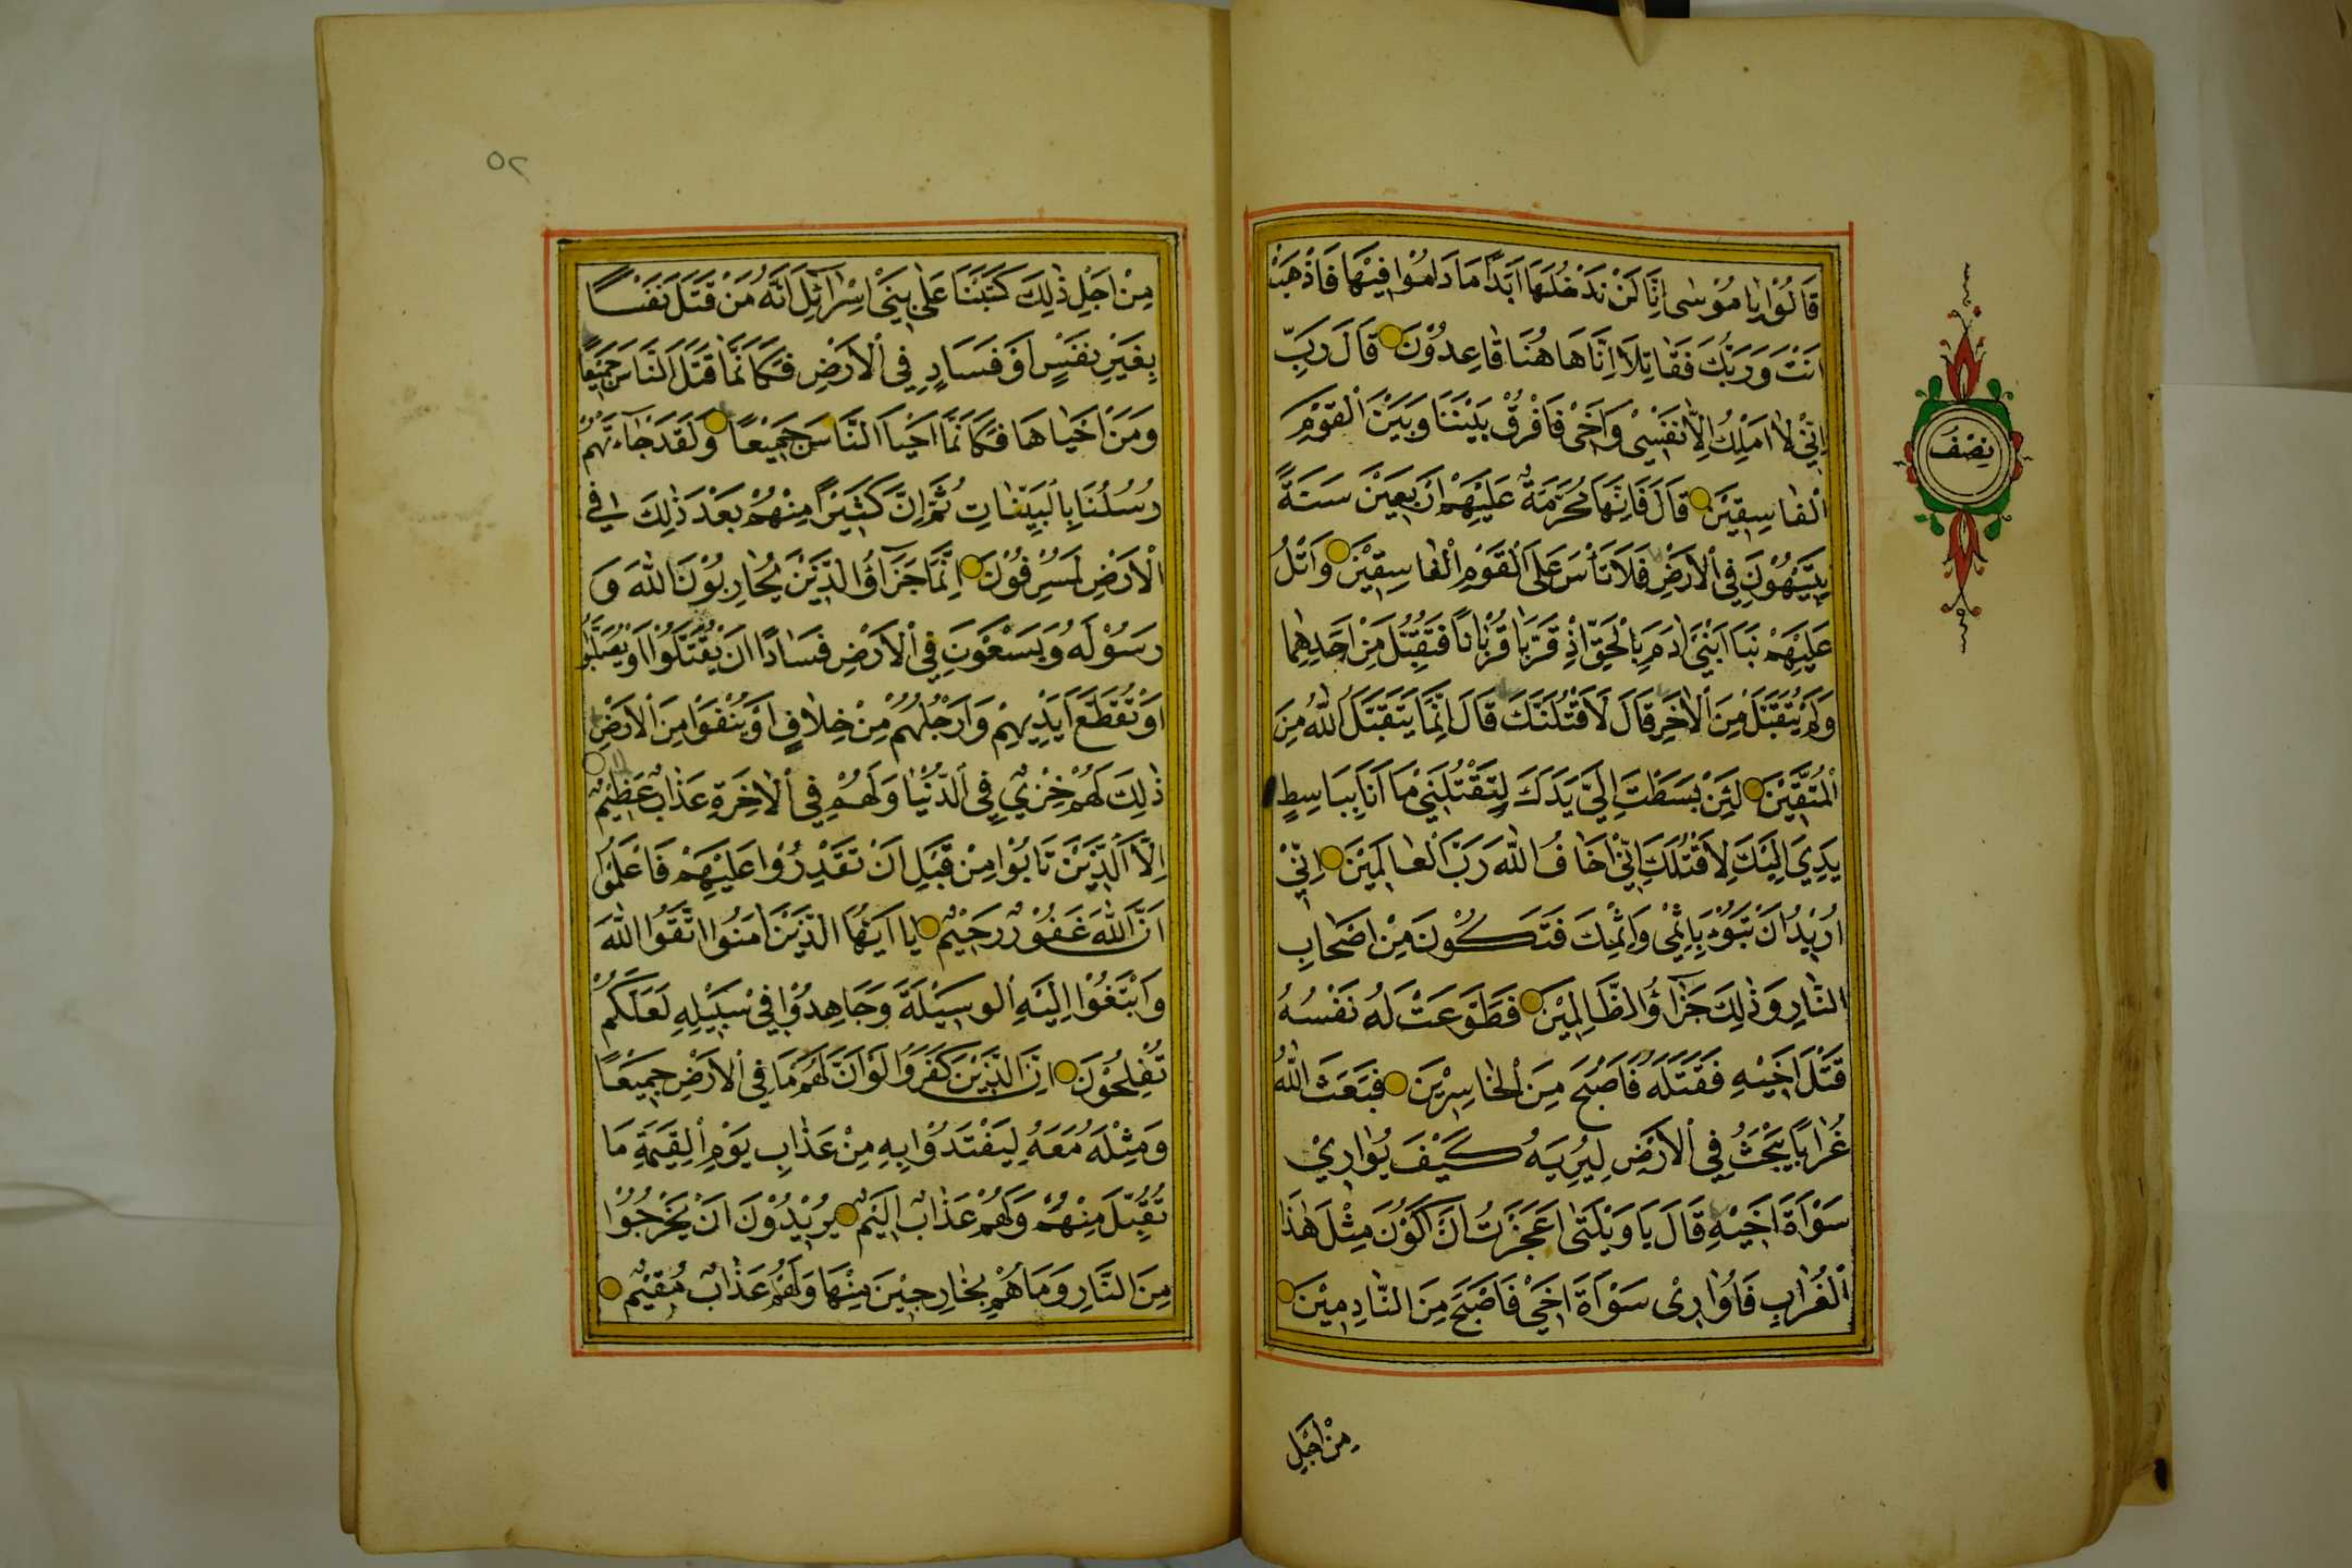 قَالُوْا يَا مُوْسٰى اِنَّا لَنْ نَدْخُلَهَا اَبَدًا مَا دَامُوْا فِيْهَا فَاذْهَبْ
اَنْتَ وَرَبُّكَ فَقَاتِلَا اِنَّا هَاهُنَا قَاعِدُوْنَ قَالَ رَبِّ
اِنِّيْ لَا اَمْلِكُ اِلَّا نَفْسِيْ وَاَخِيْ فَافْرُقْ بَيْنَنَا وَبَيْنَ الْقَوْمِ
الْفَاسِقِيْنَ قَالَ فَاِنَّهَا مُحَرَّمَةٌ عَلَيْهِمْ اَرْبَعِيْنَ سَنَةً
يَتِيْهُوْنَ فِي الْاَرْضِ فَلَا تَأْسَ عَلَى الْقَوْمِ الْفَاسِقِيْنَ وَاتْلُ
عَلَيْهِمْ نَبَاَ ابْنَيْ اٰدَمَ بِالْحَقِّ اِذْ قَرَّبَا قُرْبَانًا فَتُقُبِّلَ مِنْ اَحَدِهِمَا
وَلَمْ يُتَقَبَّلْ مِنَ الْاٰخَرِ قَالَ لَاَقْتُلَنَّكَ قَالَ اِنَّمَا يَتَقَبَّلُ اللّٰهُ مِنَ
الْمُتَّقِيْنَ لَئِنْ بَسَطْتَ اِلَيَّ يَدَكَ لِتَقْتُلَنِيْ مَا اَنَا بِبَاسِطٍ
يَدِيَ اِلَيْكَ لِاَقْتُلَكَ اِنِّيْ اَخَافُ اللّٰهَ رَبَّ الْعَالَمِيْنَ اِنِّيْ
اُرِيْدُ اَنْ تَبُوْءَ بِاِثْمِيْ وَاِثْمِكَ فَتَكُوْنَ مِنْ اَصْحَابِ
النَّارِ وَذٰلِكَ جَزَاؤُ الظَّالِمِيْنَ فَطَوَّعَتْ لَهُ نَفْسُهُ
قَتْلَ اَخِيْهِ فَقَتَلَهُ فَاَصْبَحَ مِنَ الْخَاسِرِيْنَ فَبَعَثَ اللّٰهُ
غُرَابًا يَبْحَثُ فِي الْاَرْضِ لِيُرِيَهُ كَيْفَ يُوَارِيْ
سَوْاَةَ اَخِيْهِ قَالَ يَا وَيْلَتٰى اَعَجَزْتُ اَنْ اَكُوْنَ مِثْلَ هٰذَا
الْغُرَابِ فَاُوَارِيْ سَوْاَةَ اَخِيْ فَاَصْبَحَ مِنَ النَّادِمِيْنَ
مِنْ اَجْلِ
نِصْفُ
٥٢
مِنْ اَجْلِ ذٰلِكَ كَتَبْنَا عَلٰى بَنِيْ اِسْرَائِلَ اَنَّهُ مَنْ قَتَلَ نَفْسًا
بِغَيْرِ نَفْسٍ اَوْ فَسَادٍ فِي الْاَرْضِ فَكَاَنَّمَا قَتَلَ النَّاسَ جَمِيْعًا
وَمَنْ اَحْيَاهَا فَكَاَنَّمَا اَحْيَا النَّاسَ جَمِيْعًا وَلَقَدْ جَاءَتْهُمْ
رُسُلُنَا بِالْبَيِّنَاتِ ثُمَّ اِنَّ كَثِيْرًا مِنْهُمْ بَعْدَ ذٰلِكَ فِي
الْاَرْضِ لَمُسْرِفُوْنَ اِنَّمَا جَزَاؤُ الَّذِيْنَ يُحَارِبُوْنَ اللّٰهَ وَ
رَسُوْلَهُ وَيَسْعَوْنَ فِي الْاَرْضِ فَسَادًا اَنْ يُقَتَّلُوْا اَوْ يُصَلَّبُوْا
اَوْ تُقَطَّعَ اَيْدِيْهِمْ وَاَرْجُلُهُمْ مِنْ خِلَافٍ اَوْ يُنْفَوْا مِنَ الْاَرْضِ
ذٰلِكَ لَهُمْ خِزْيٌ فِي الدُّنْيَا وَلَهُمْ فِي الْاٰخِرَةِ عَذَابٌ عَظِيْمٌ
اِلَّا الَّذِيْنَ تَابُوْا مِنْ قَبْلِ اَنْ تَقْدِرُوْا عَلَيْهِمْ فَاعْلَمُوْا
اَنَّ اللّٰهَ غَفُوْرٌ رَحِيْمٌ يَا اَيُّهَا الَّذِيْنَ اٰمَنُوا اتَّقُوا اللّٰهَ
وَابْتَغُوْا اِلَيْهِ الْوَسِيْلَةَ وَجَاهِدُوْا فِيْ سَبِيْلِهِ لَعَلَّكُمْ
تُفْلِحُوْنَ اِنَّ الَّذِيْنَ كَفَرُوْا لَوْ اَنَّ لَهُمْ مَا فِي الْاَرْضِ جَمِيْعًا
وَمِثْلَهُ مَعَهُ لِيَفْتَدُوْا بِهِ مِنْ عَذَابِ يَوْمِ الْقِيٰمَةِ مَا
تُقُبِّلَ مِنْهُمْ وَلَهُمْ عَذَابٌ اَلِيْمٌ يُرِيْدُوْنَ اَنْ يَخْرُجُوْا
مِنَ النَّارِ وَمَا هُمْ بِخَارِجِيْنَ مِنْهَا وَلَهُمْ عَذَابٌ مُقِيْمٌ